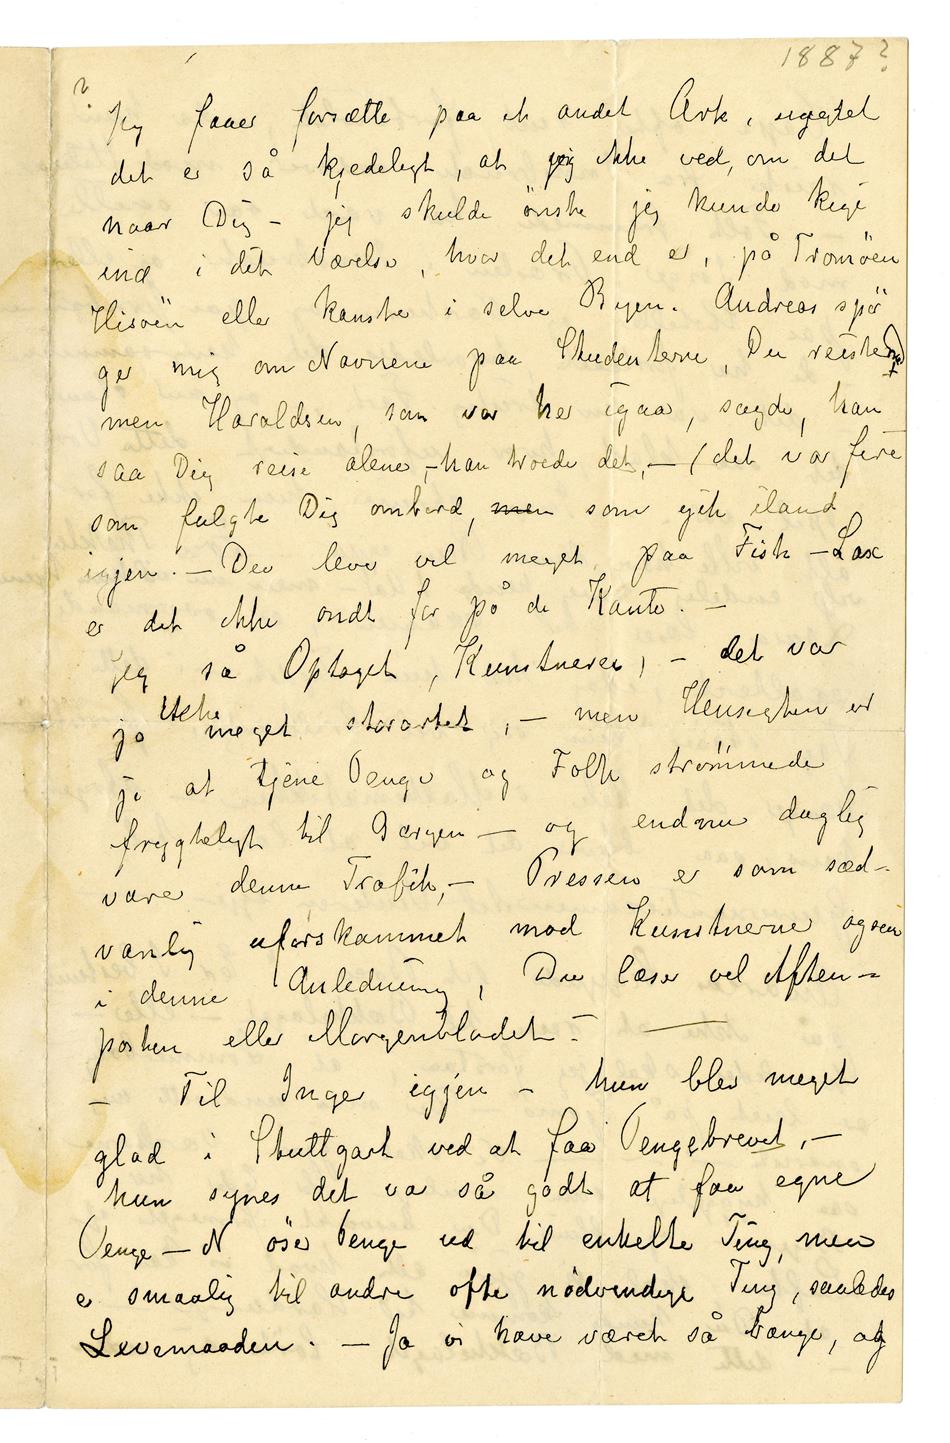 1887?
2
Jeg faaer forsætte paa et andet Ark, uagtet
det er så kjedeligt, at jeg ikke ved, om det
naar Dig – jeg skulde önske jeg kunde kige
ind i det Værelse, hvor det end er, på Tromöen
Hisöen eller kanske i selve Byen. Andreas spör
ger mig om Navnene paa Studenterne, Du reiste med
men Haraldsen, som var her igaar, sagde, han
saa Dig reise alene, – han troede det, – (det var fire
som fulgte Dig ombord, men som gik iland
igjen. – Der leves vel meget paa Fisk – Lax
er det ikke ondt for på de Kanter. –
Jeg så Optoget, Kunstneres, – det var
jo ikke meget storartet, – men Hensigten er
jo at tjene Penge og Folk strömmede
frygteligt til Börsen – og endnu daglig
varer denne Trafik, – Pressen er som sæd-
vanlig uforskammet mod Kunstnerne ogsaa
i denne Anledning, Du læser vel Aften-
posten eller Morgenbladet. –
– Til Inger igjen – hun blev meget
glad i Stuttgart ved at faa Pengebrevet, –
hun synes det var så godt at faa egne
Penge – N öser Penge ud til enkelte Ting, men
er smaalig til andre ofte nödvendige Ting, saaledes
Levemaaden. – Ja vi have været så bange, og